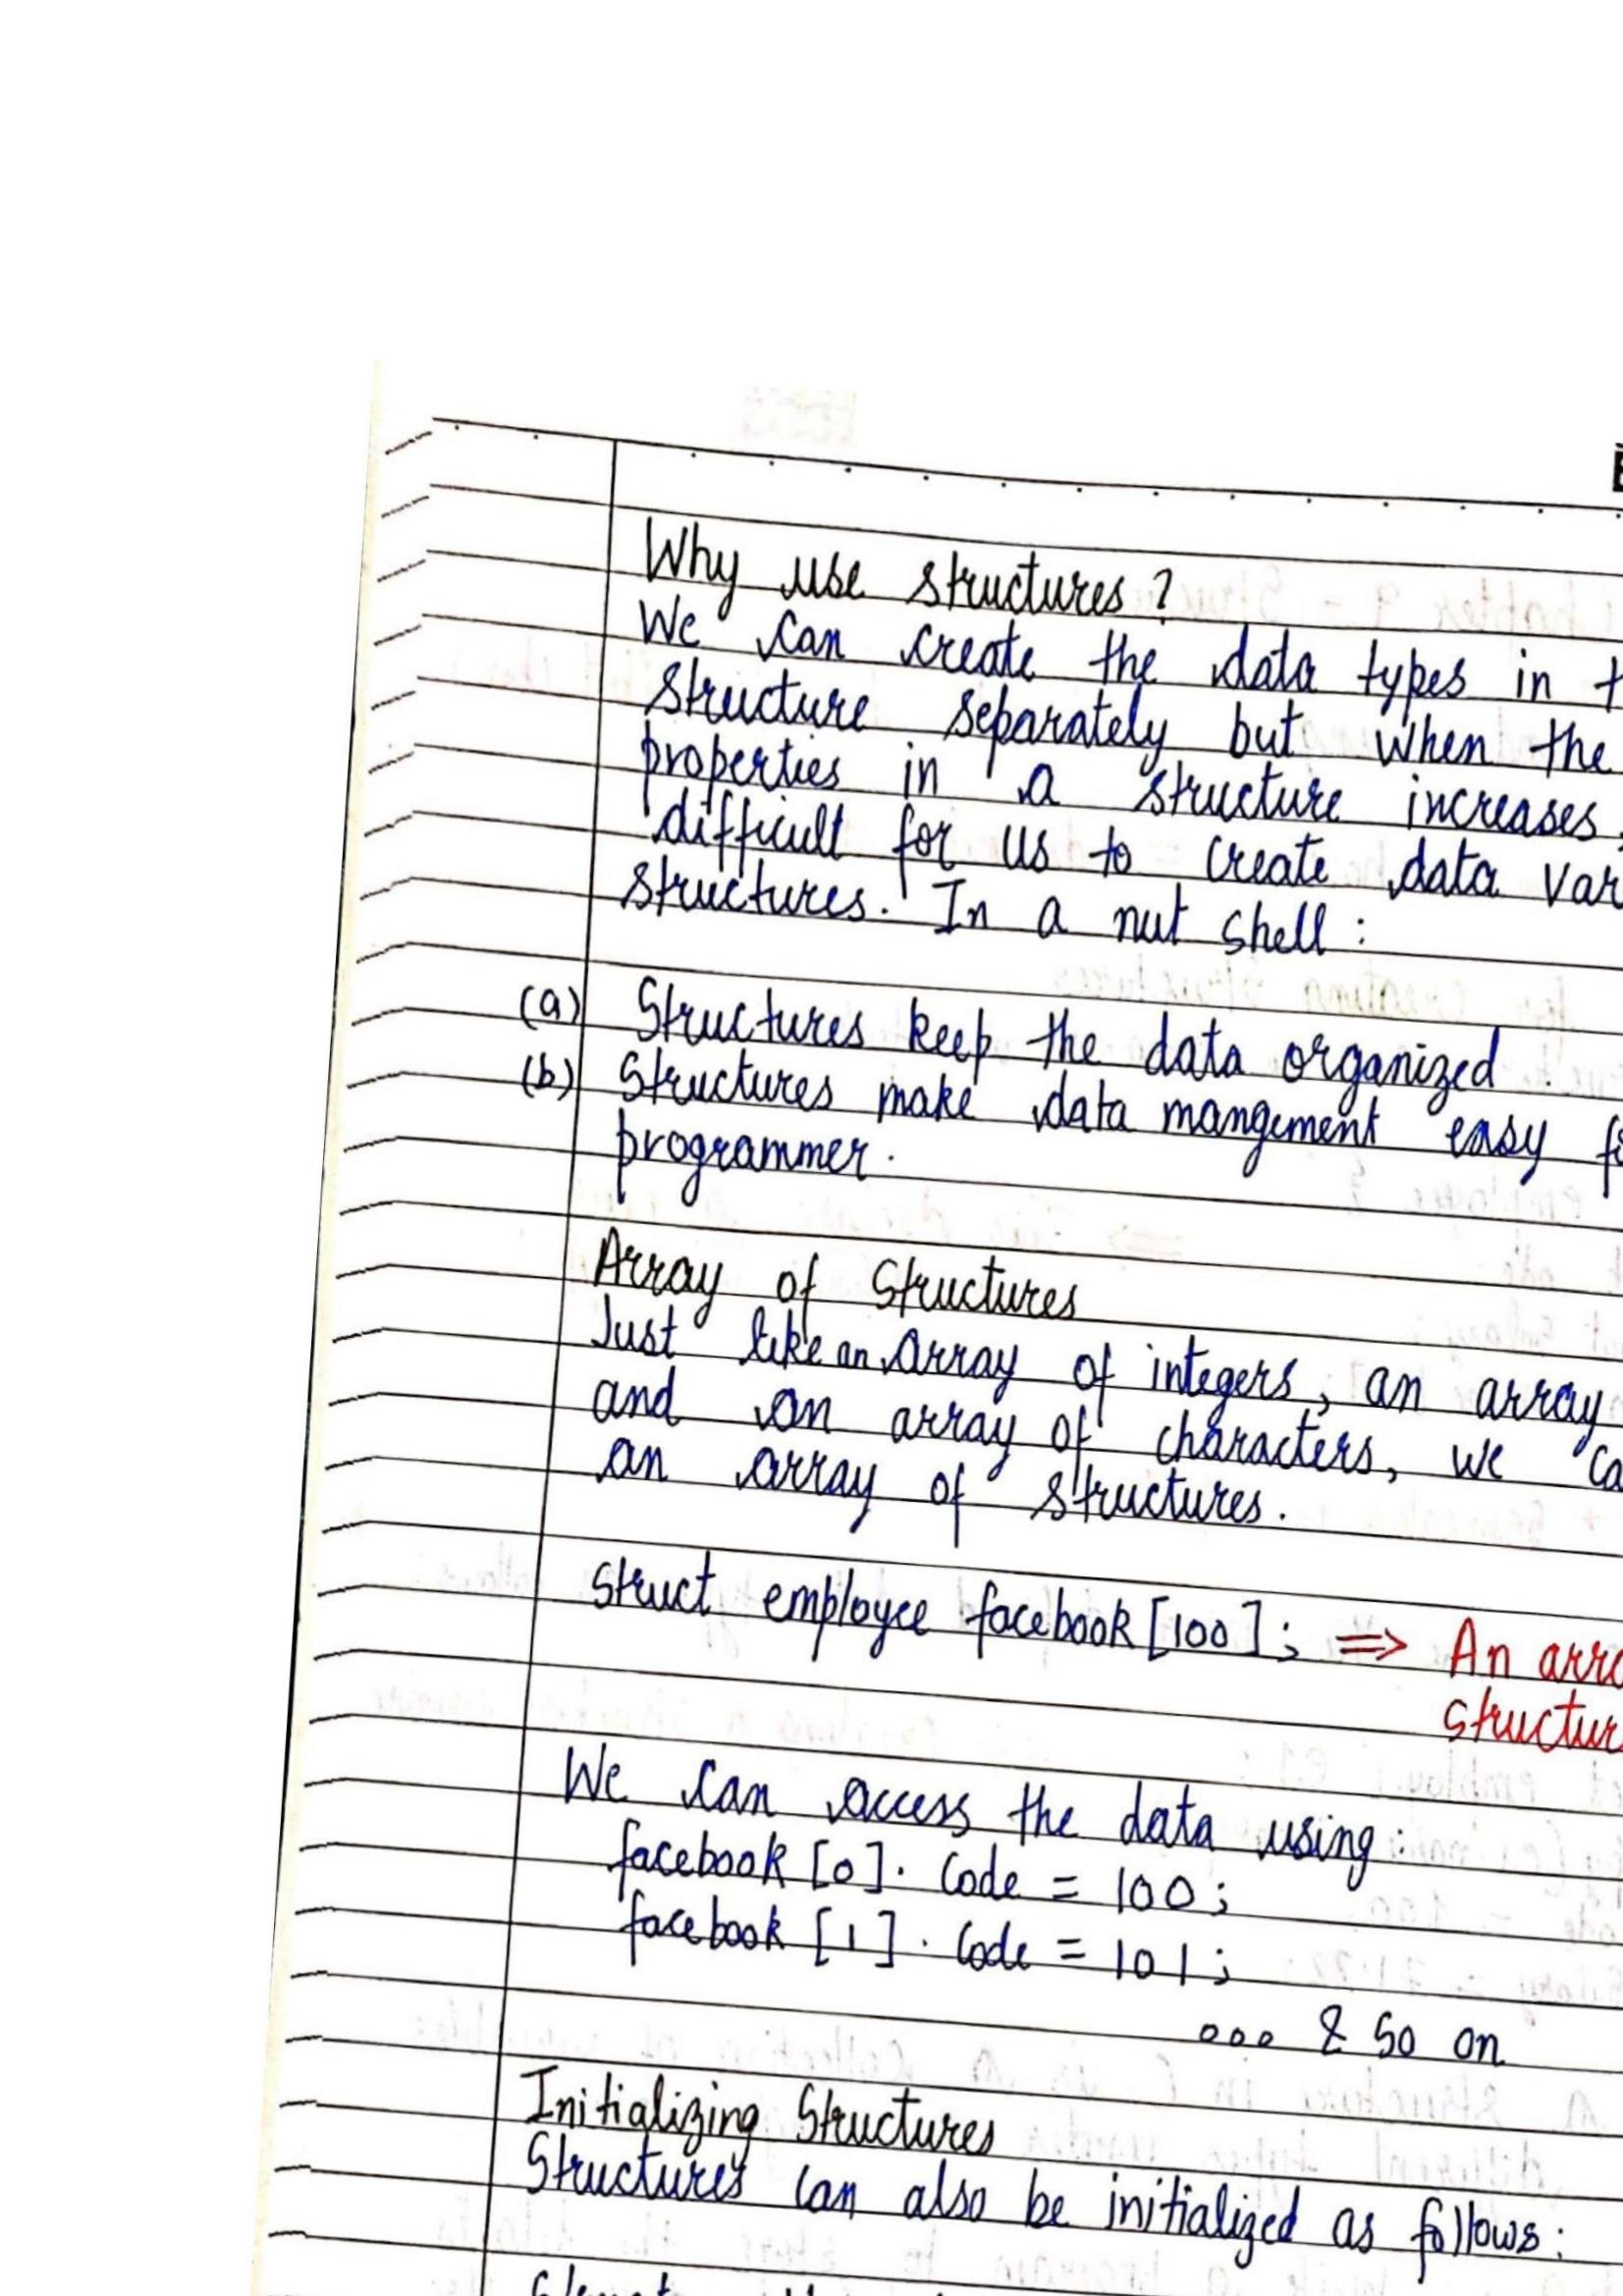 Why use structures?
We can create the data types in t
structure separately but when the
properties in a structure increases,
difficult for us to create data var
structures. In a nut shell :
(a) Structures keep the data organized .
(b) Structures make data mangement easy f
programmer.
Array of Structures
Just like an array of integers, an array
and an array of characters, we ca
an array of structures.
Struct employee facebook [100] ; => An arra
structur
We can access the data using:
facebook [0]. Code = 100 ;
facebook [1]. Code = 101 ;
ooo & So on
Initializing Structures
Structures can also be initialized as follows: